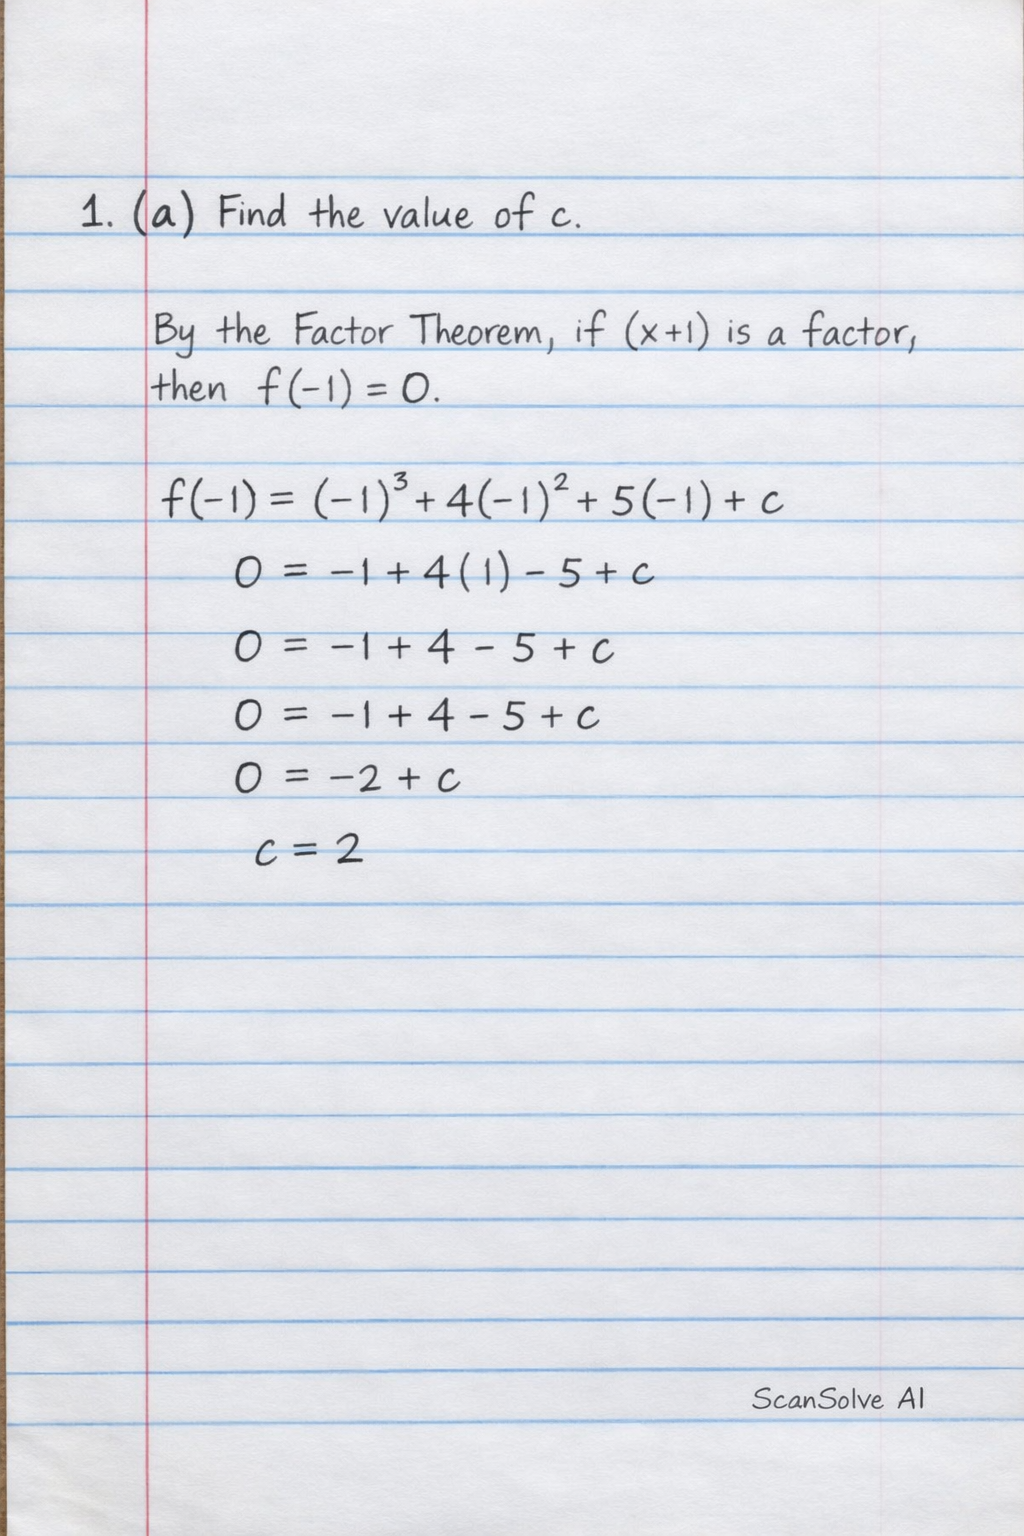 1. (a) Find the value of c.
By the Factor Theorem, if (x+1) is a factor,
then f(-1) = 0.
f(-1) = (-1)³ + 4(-1)² + 5(-1) + c
0 = -1 + 4(1) - 5 + c
0 = -1 + 4 - 5 + c
0 = -1 + 4 - 5 + c
0 = -2 + c
c = 2
ScanSolve AI